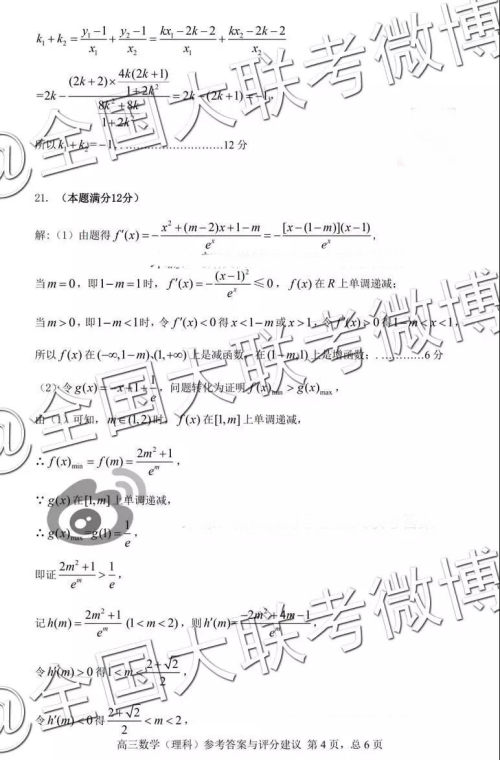 k₁ + k₂ = (y₁−1)/x₁ + (y₂−1)/x₂ = (kx₁−2k−2)/x₁ + (kx₂−2k−2)/x₂
=2k − ((2k+2)×4k(2k+1)/(1+2k²))/((8k²+8k)/(1+2k²)) = 2k−(2k+1)=−1,
所以k₁+k₂=−1. ………………………12 分
21. (本题满分12分)
解:(1)由题得 f′(x)=−(x²+(m−2)x+1−m)/eˣ=−([x−(1−m)](x−1))/eˣ,
当m=0, 即1−m=1时, f′(x)=−(x−1)²/eˣ≤0, f(x)在R上单调递减;
当m>0, 即1−m<1时, 令f′(x)<0得x<1−m或x>1, 令f′(x)>0得1−m<x<1,
所以f(x)在(−∞,1−m),(1,+∞)上是减函数, 在(1−m,1)上是增函数; ………6 分
(2)令g(x)=−x+1+1/e, 问题转化为证明f(x)min>g(x)max,
由(1)可知, m∈(1,2)时, f(x)在[1,m]上单调递减,
∴f(x)min=f(m)=(2m²+1)/eᵐ,
∵g(x)在[1,m]上单调递减,
∴g(x)max=g(1)=1/e,
即证(2m²+1)/eᵐ>1/e,
记h(m)=(2m²+1)/eᵐ (1<m<2), 则h′(m)=(−2m²+4m−1)/eᵐ,
令h′(m)>0得1<m<(2+√2)/2,
令h′(m)<0得(2+√2)/2<m<2,
高三数学(理科)参考答案与评分建议 第4页, 总6页
@全国大联考微博
@全国大联考微博
@全国大联考微博